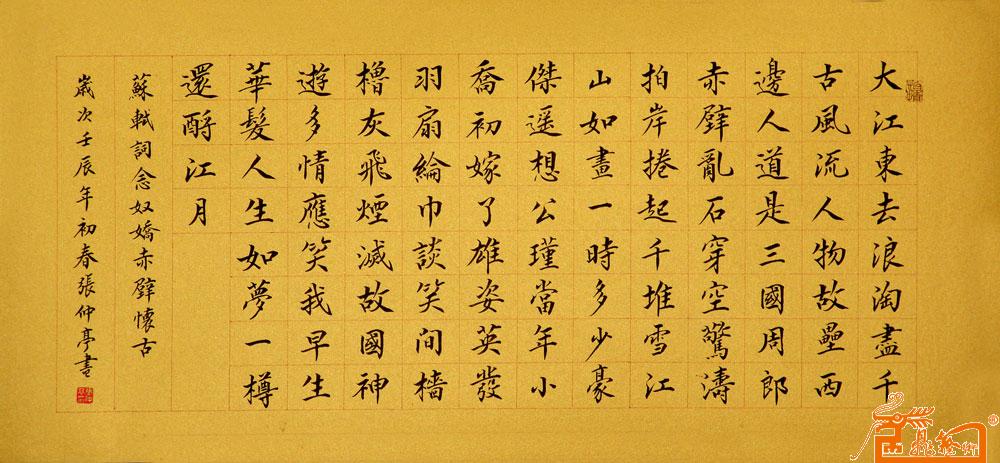 大江東去浪淘盡千
古風流人物故壘西
邊人道是三國周郎
赤壁亂石穿空驚濤
拍岸捲起千堆雪江
山如畫一時多少豪
傑遥想公瑾當年小
喬初嫁了雄姿英發
羽扇綸巾談笑間檣
櫓灰飛煙滅故國神
遊多情應笑我早生
華髮人生如夢一樽
還酹江月
蘇軾詞念奴嬌赤壁懷古
歲次壬辰年初春張仲亭書